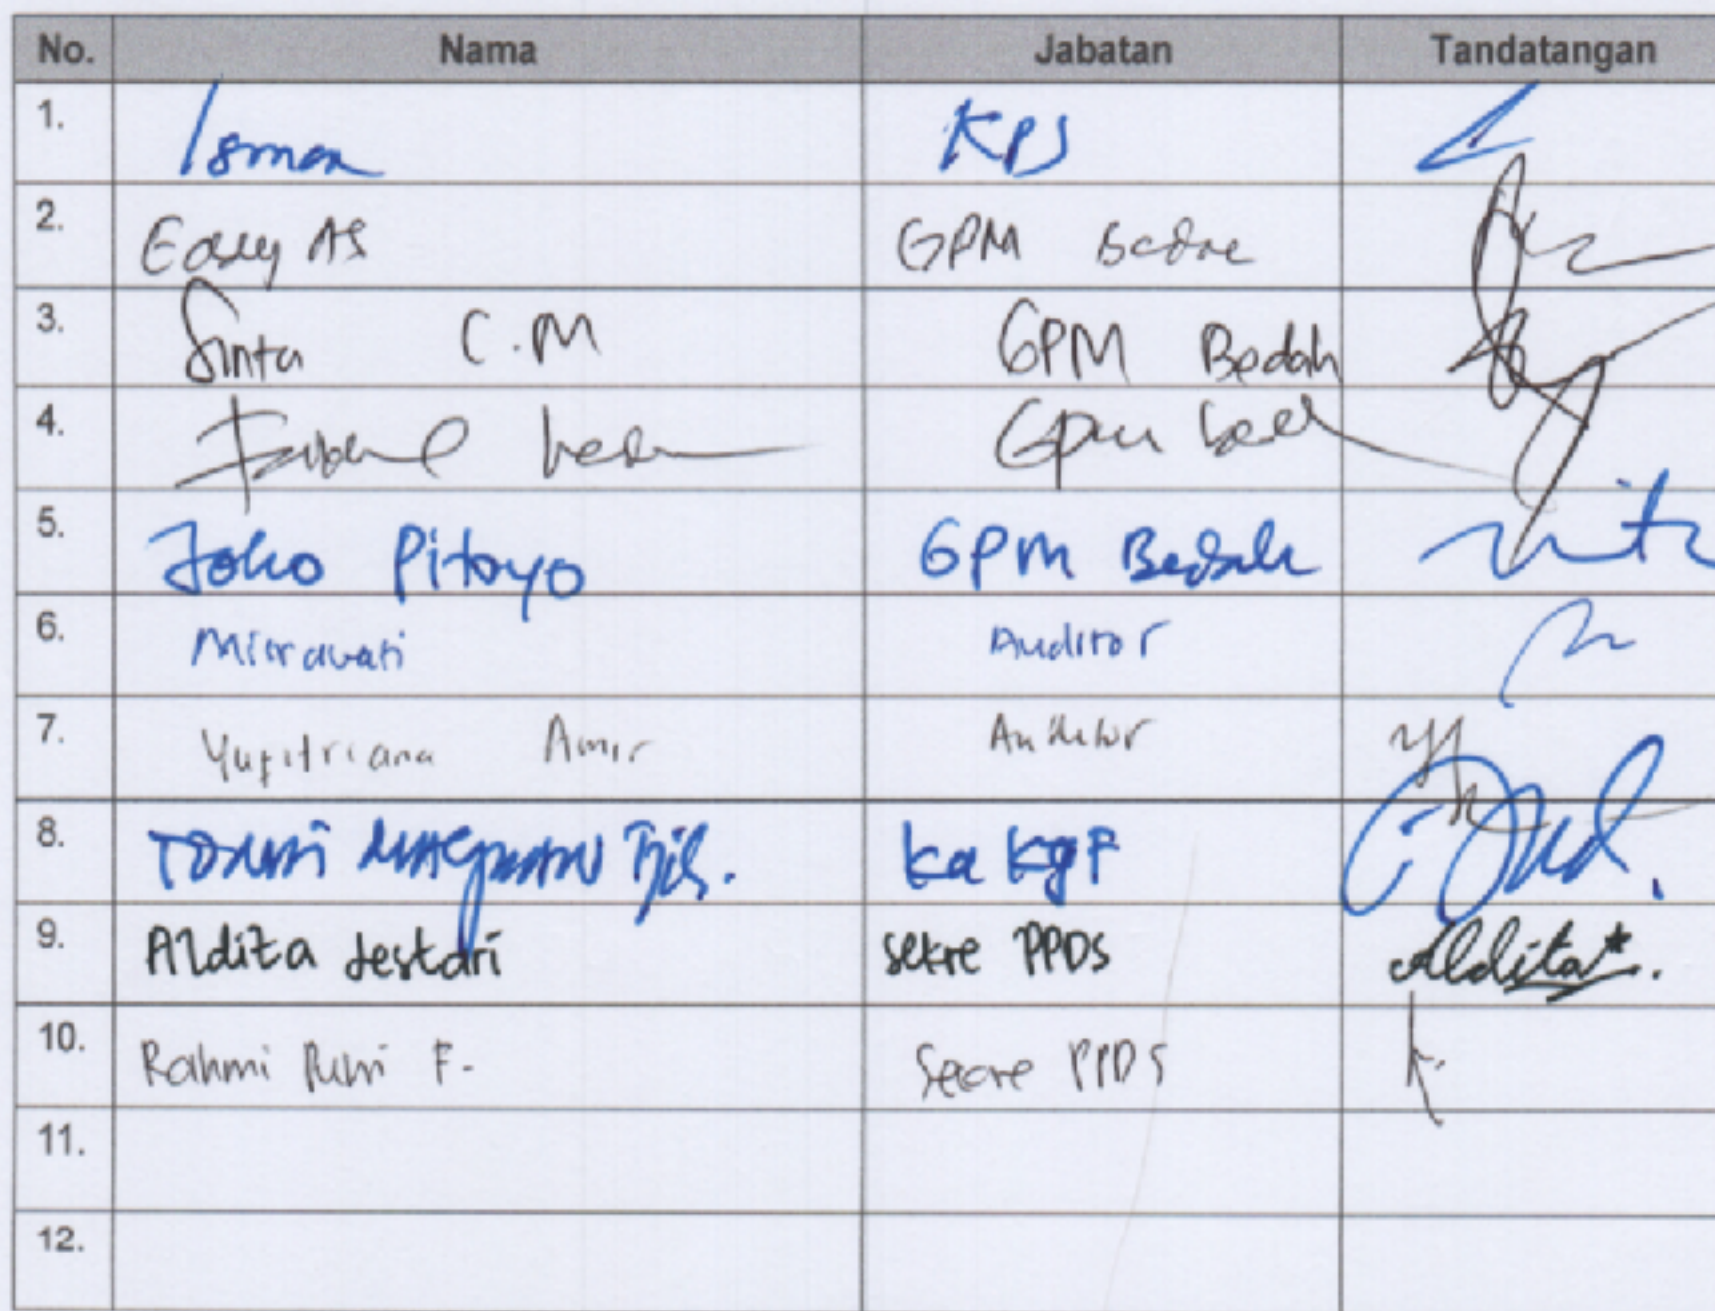 No. Nama Jabatan Tandatangan
1. Isman KPS
2. Eddy AS GPM
3. Sinta C.M GPM Bedah
4. GPM
5. Joko Pitoyo GPM Bedah
6. Mitrawati Auditor
7. Yufitriana Amir Auditor
8. Ka KJF
9. Aldita Lestari sekre PPDS Aldita
10. Rahmi Putri F. Sekre PPDS
11.
12.